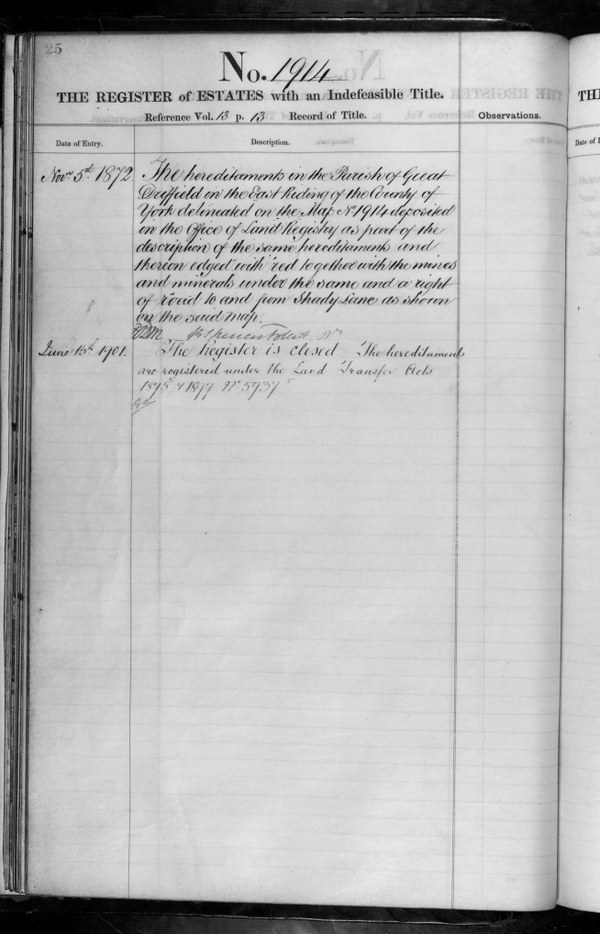 25
No. 1914
THE REGISTER of ESTATES with an Indefeasible Title.
Reference Vol. 13 p. 13 Record of Title.
Observations.
Date of Entry.
Description.
Novr. 5th 1872
The hereditaments in the Parish of Great
Driffield in the East Riding of the County of
York delineated on the Map No 1914 deposited
in the Office of Land Registry as part of the
description of the same hereditaments and
thereon edged with red together with the mines
and minerals under the same and a right
of road to and from Shady Lane as shown
on the said map.
June 15th 1901.
The Register is closed The hereditaments
are registered under the Land Transfer Acts
1875 & 1897 No 5937
TH
Date of